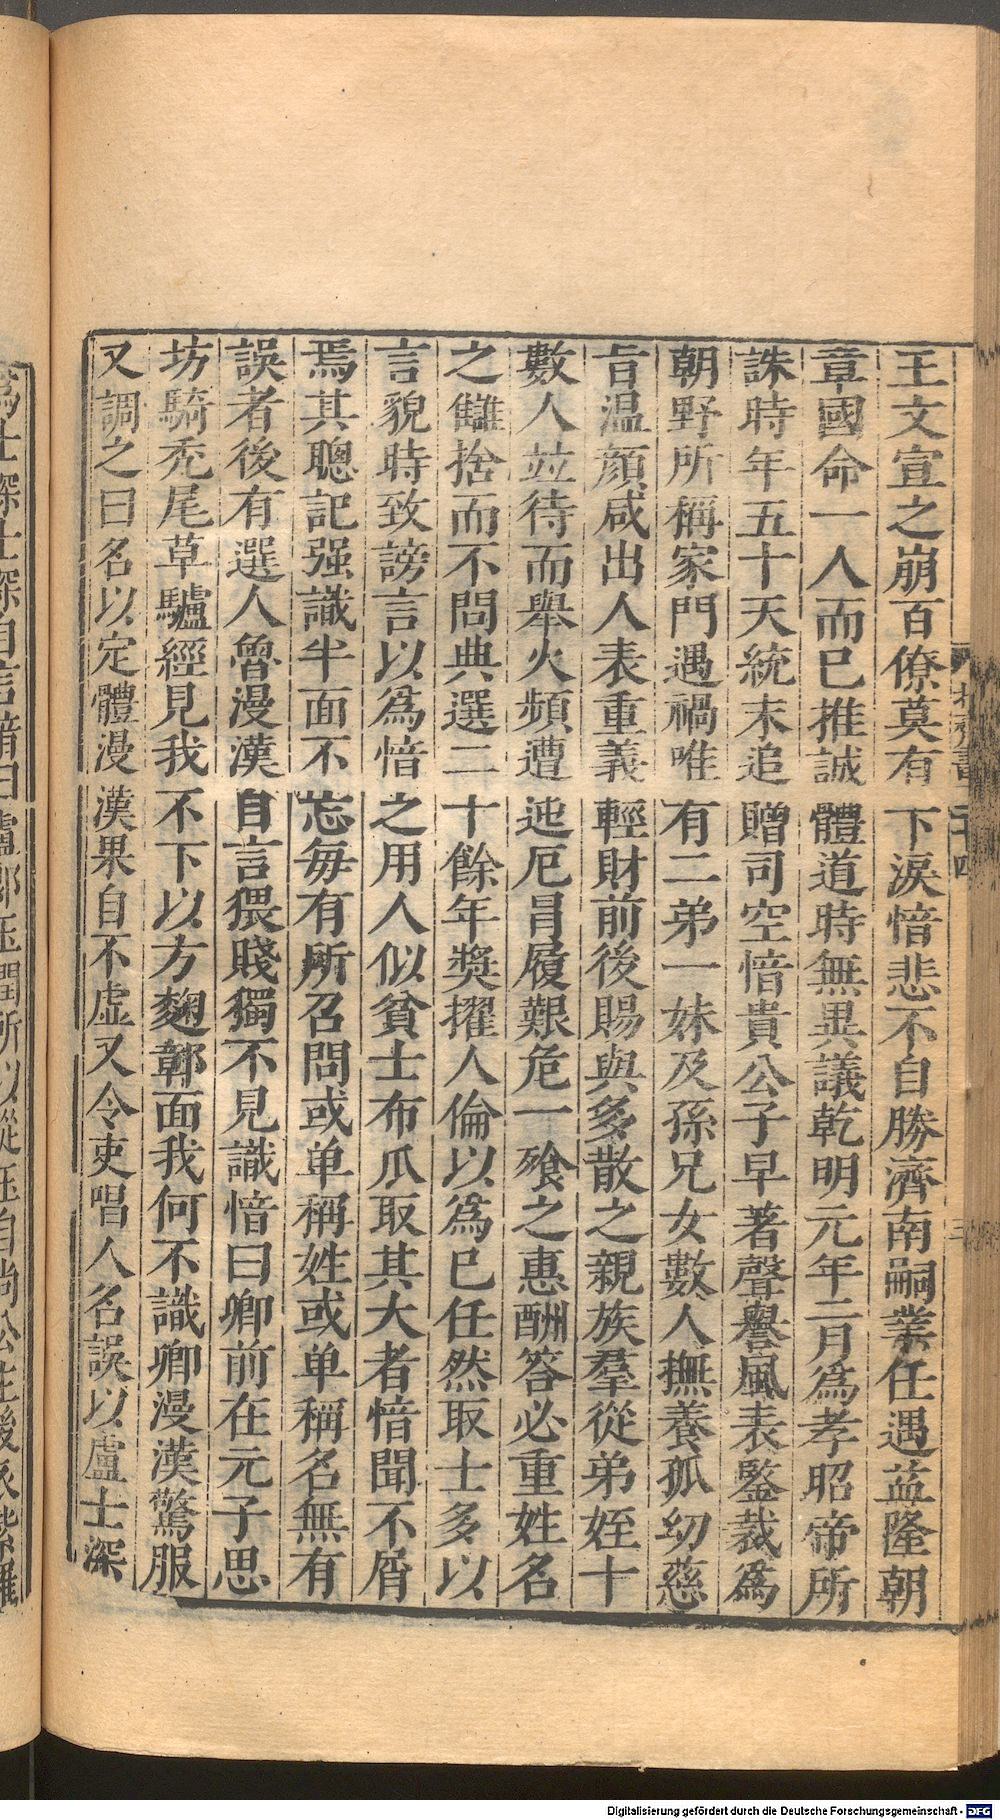 王文宣之崩百僚莫有下淚愔悲不自勝濟南嗣業任遇益隆朝
章國命一人而已推誠體道時無異議乾明元年二月為孝昭帝所
誅時年五十天統末追贈司空愔貴公子早著聲譽風表鑒裁為
朝野所稱家門遇禍唯有二弟一妹及孫兄女數人撫養孤幼慈
旨温顔咸出人表重義輕財前後賜與多散之親族羣從弟姪十
數人竝待而舉火頻遭迍厄冒履艱危一飱之惠酬答必重姓名
之讎捨而不問典選二十餘年奬擢人倫以為巳任然取士多以
言貌時致謗言以為愔之用人似貧士市瓜取其大者愔聞不屑
焉其聰記强識半面不忘每有所召問或单稱姓或单稱名無有
誤者後有選人魯漫漢自言猥賤獨不見識愔曰卿前在元子思
坊騎秃尾草驢經見我不下以方麴鄣面我何不識卿漫漢驚服
又調之曰名以定體漫漢果自不虚又令吏唱人名誤以盧士深
為士琛士深自言愔曰盧郎玉潤所以從玉自尚公主後衣紫羅
北齊書二十四
三
Digitalisierung gefördert durch die Deutsche Forschungsgemeinschaft - DFG